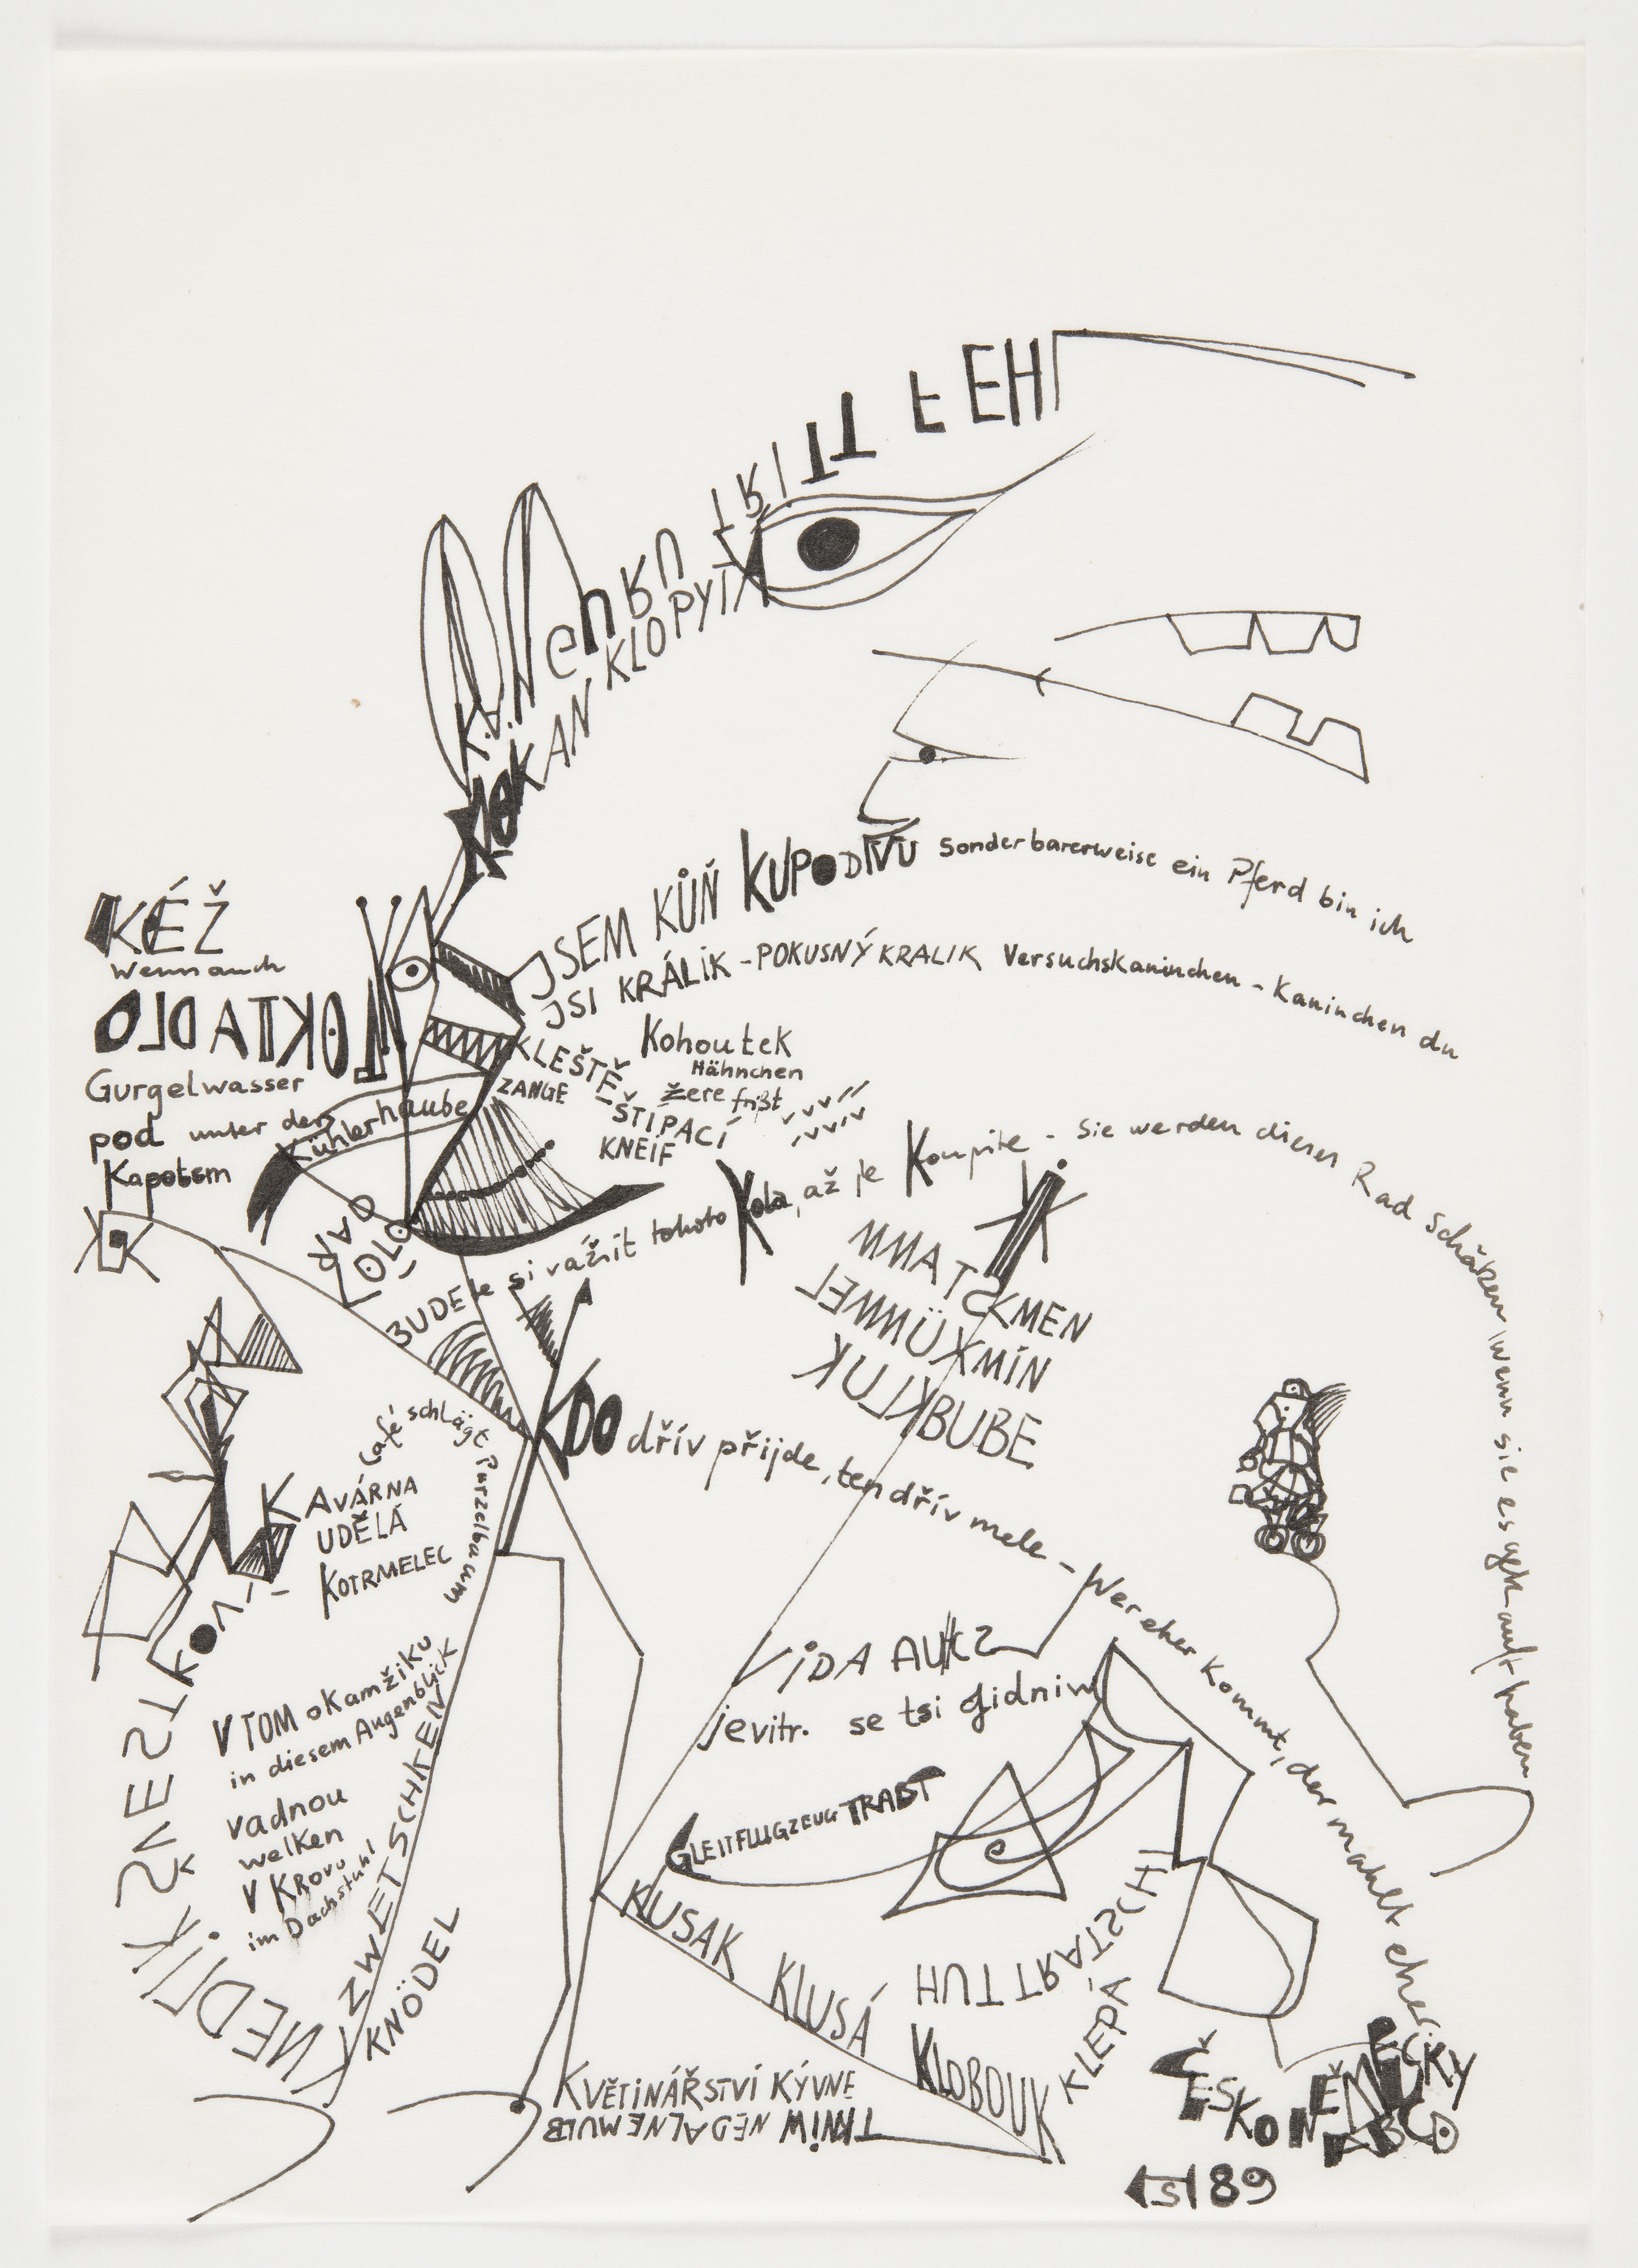 HUF TRITT Henne
KOKAN KLOPYTA
KÉŽ
Wenn auch
KLOKTADLO
Gurgelwasser
pod unter der
Kühlerhaube
Kapotom
JSEM KŮŇ KUPODIVU Sonderbarerweise ein Pferd bin ich
JSI KRÁLÍK - POKUSNÝ KRALIK Versuchskaninchen - Kaninchen du
KLEŠTĚ ŠTÍPACÍ
ZANGE KNEIF
Kohoutek
Hähnchen
žere frißt
BUDEte si vážit tohoto Kola, až je Koupíte - Sie werden dieses Rad schäzen wenn sie es gekauft haben
STAMM KMEN
KÜMMEL KMÍN
KLUK BUBE
KDO dřív přijde, ten dřív mele - Wer eher Kommt, der mahlt eher
Café schlägt Purzelbaum
KAVÁRNA
UDĚLÁ
KOTRMELEC
V TOM oKamžiku
in diesem Augenblick
vadnou
welken
V KRovu
im Dachstuhl
KNEDLÍK
ZWETSCHKEN
KNÖDEL
jevitr. se tsi
GLEITFLUGZEUG TRABT
KLUSAK KLUSÁ
HUT TRATSCHT
KLOBOUK KLEPÁ
KVĚTINÁŘSTVÍ KÝVNE
BLUMENLADEN WINKT
ČESKO NĚMECKY
ABCD
89